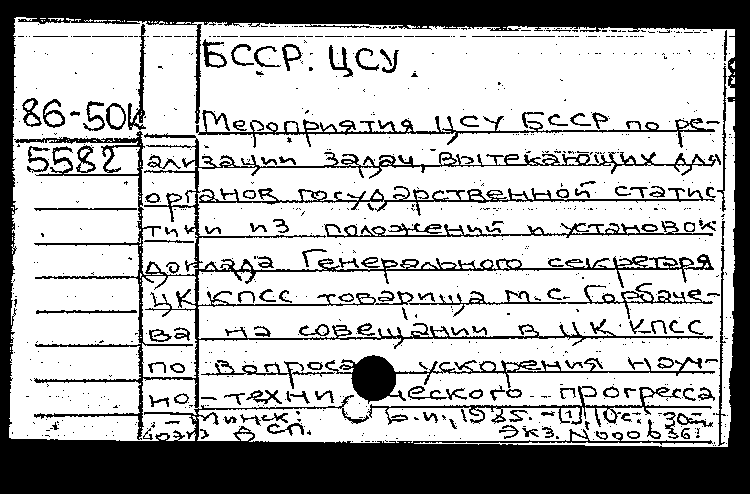 БССР. ЦСУ
86-50к
Мероприятия ЦСУ БССР по ре-
5582
ализации задач, вытекающих для
органов государственной статис-
тики из положений и установок
доклада Генерального секретаря
ЦК КПСС товарища М.С. Горбаче-
ва на совещании в ЦК КПСС
по вопроса ускорения науч-
но-техни ческого прогресса
– Минск: Б.и., 1985. – [1], 10с.; 30
ДСП. Экз. N000636